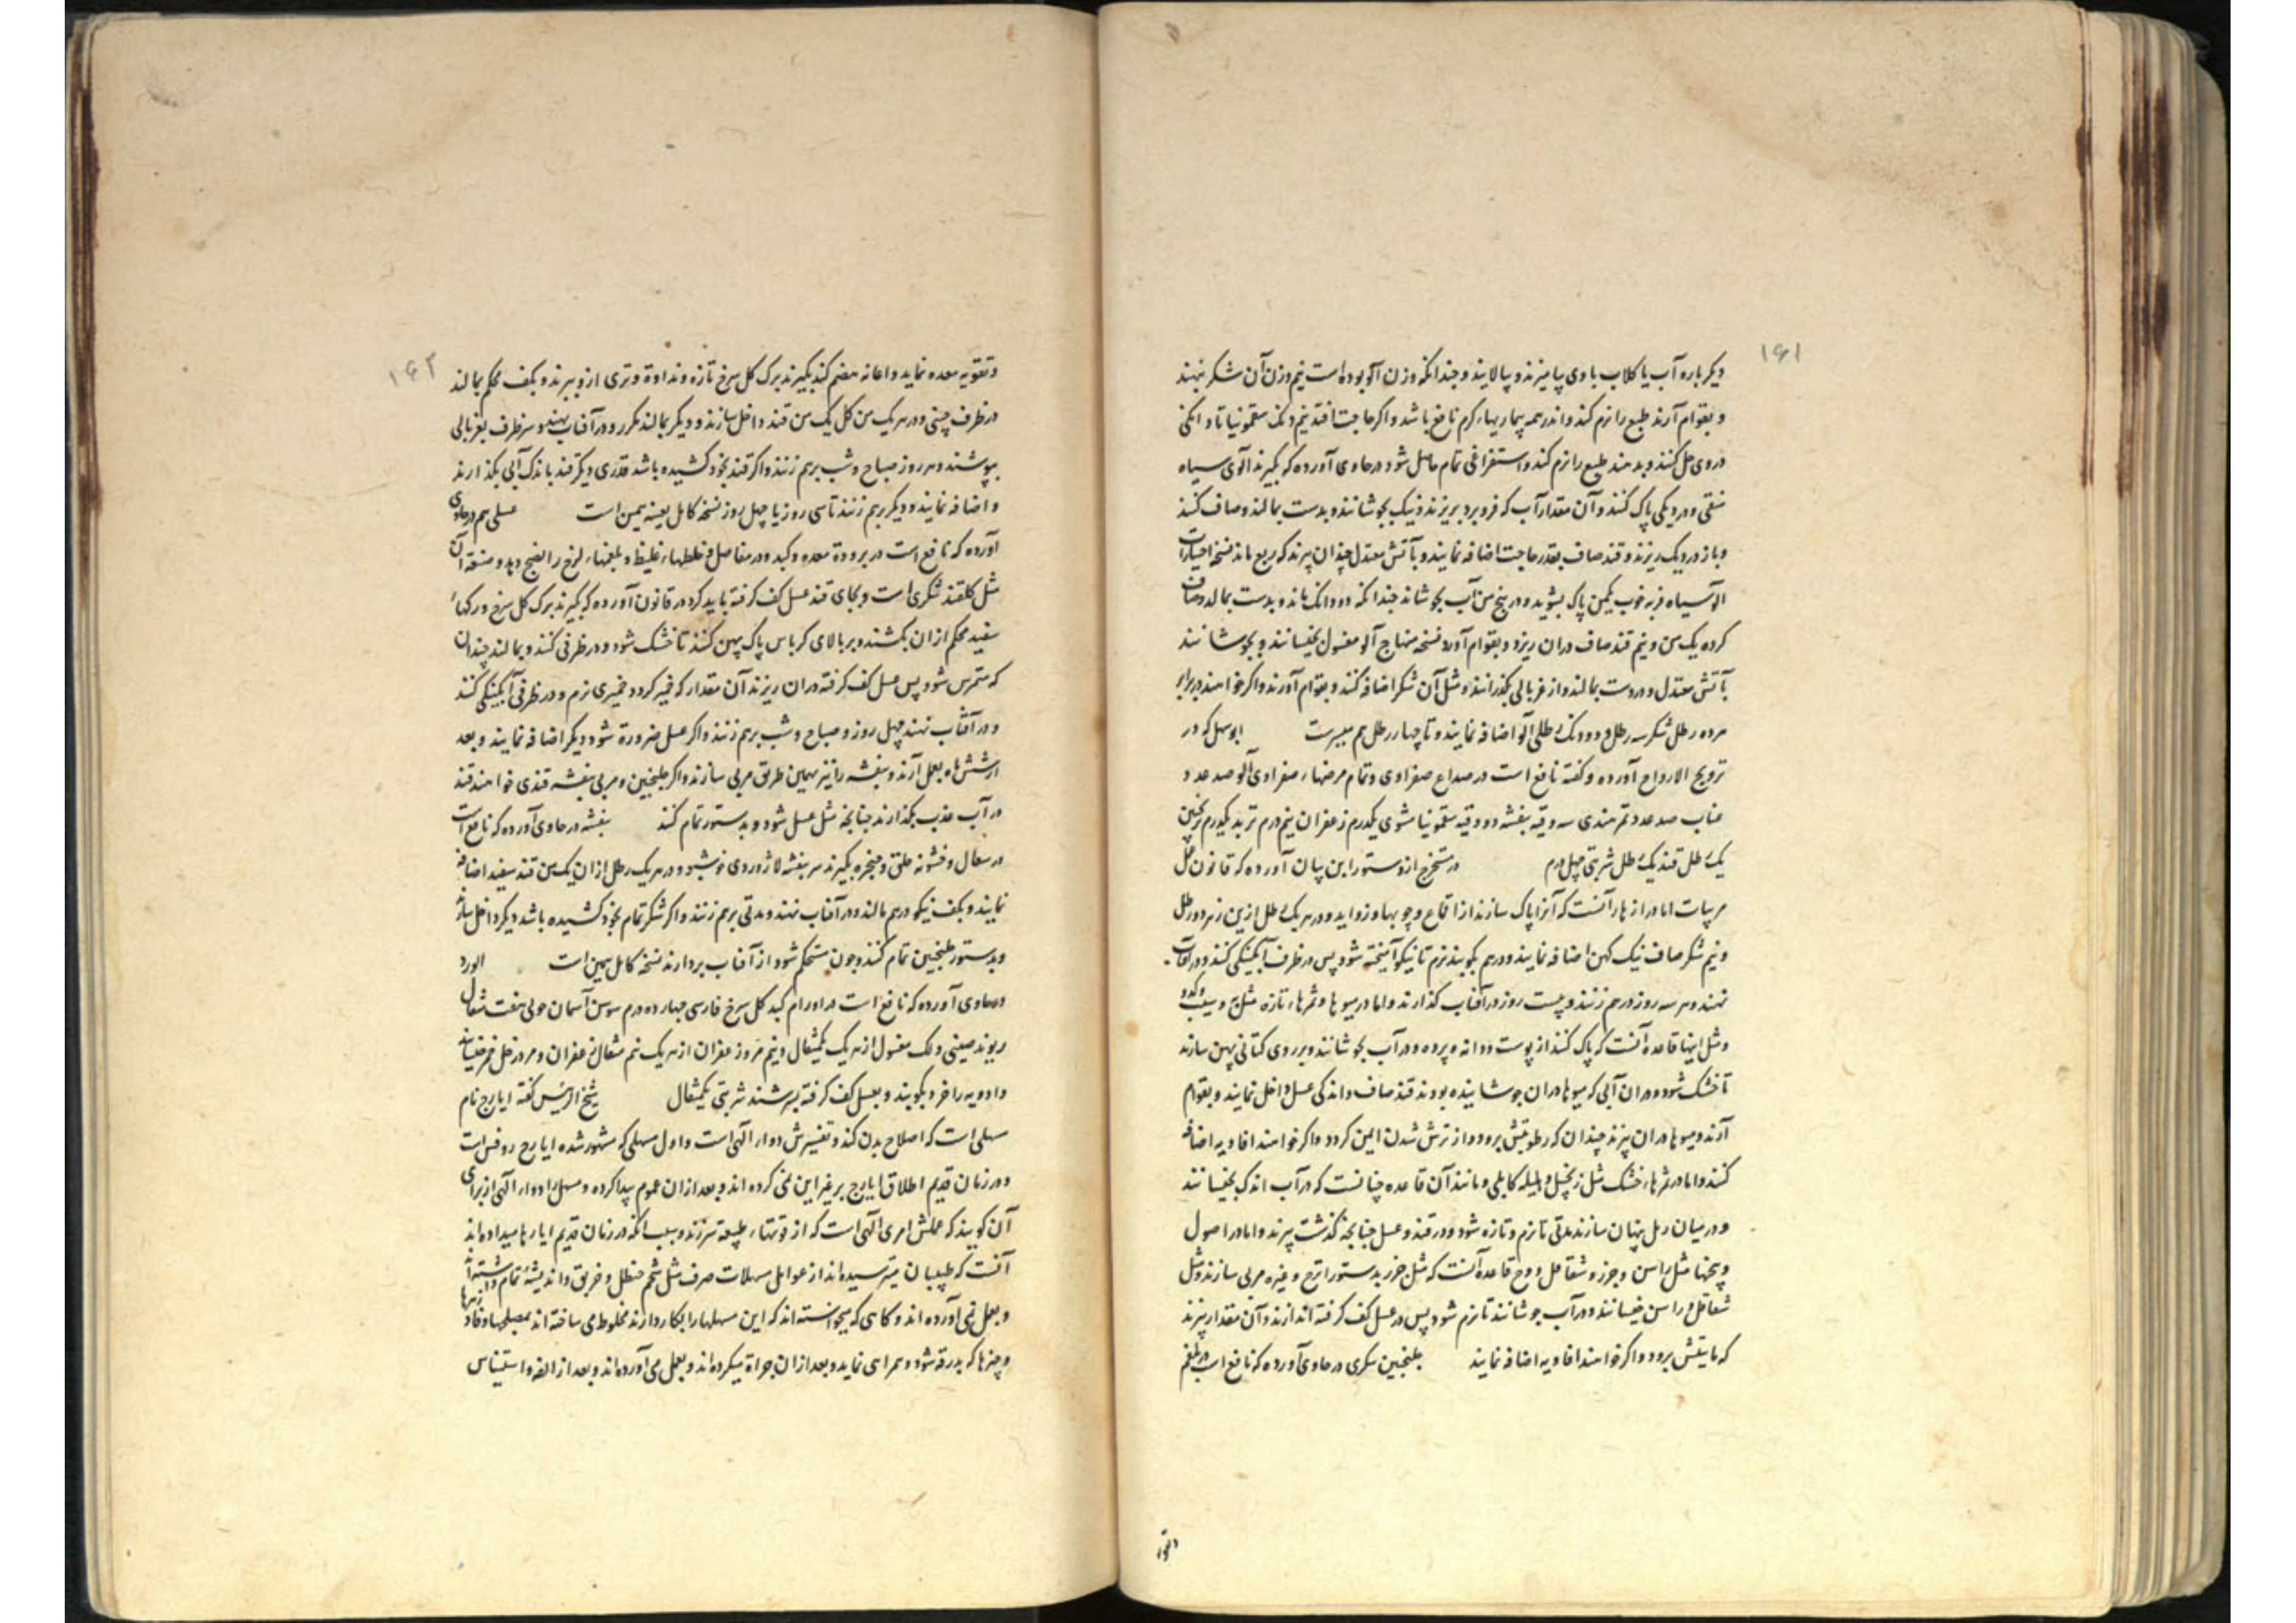 ۱۶۱
دیکر باره آب یا کلاب با وی بیامیزند و بپالایند و چندانکه وزن آلو بوده است نیم وزن آن شکر نهند
و بقوام آرند طبع را نرم کند و اندر همه بیماریهاء کرم نافع باشد و اکر حاجت افتد نیم دنک سقمونیا تا دانکی
در وی حل کنند و بدهند طبع را نرم کند و استفراغی تمام حاصل شود در حاوی آورده که بکیرند آلوی سیاه
منقی و در دیکی پاک کنند و آن مقدار آب که فرو برد بریزند و نیک بجوشانند و بدست بمالند و صاف کنند
و باز در دیک ریزند و قند صاف بقدر حاجت اضافه نمایند و بآتش معتدل چندان پزند که ربع ماند نسخه اختیارات
آلو سیاه فربه خوب یکمن پاک بشوید و در پنج من آب بجوشاند چندانکه دو دانک ماند و بدست بمالد و صاف
کرده یک من و نیم قند صاف دران ریزد و بقوام آورد نسخه منهاج آلو مغسول بخیسانند و بجوشانند
بآتش معتدل و در دست بمالند و از غربالی بکذرانند و مثل آن شکر اضافه کنند و بقوام آورند و اکر خواهند در برابر
هر ده رطل شکر سه رطل و دو دنک رطلی آلو اضافه نمایند و تا چهار رطل هم میسرست ابو سهل که در
ترویح الارواح آورده و کفته نافع است در صداع صفراوی و تمام مرضهاء صفراوی آلو صد عدد
عناب صد عدد تمر هندی سه وقیه بنفشه دو وقیه سقمونیا مشوی یکدرم زعفران نیم درم تربد یکدرم ترنجبین
یک رطل قند یک رطل شربتی چهل درم در مستخرج از دستور این بیان آورده که قانون کل
مربیات اما در ازهار آنست که آنرا پاک سازند از اقماع و چوبها و زواید و در هر یک رطل ازین زهر دو رطل
و نیم شکر صاف نیک کهن اضافه نمایند و در هم بکوبند نرم تا نیکو آمیخته شود پس در ظرف آبکینکی کنند و در آفتاب
نهند و هر سه روز در هم زنند و بیست روز در آفتاب کذارند و اما در میوها و ثمرهاء تازه مثل به و سیب و کدو
و مثل اینها قاعده آنست که پاک کنند از پوست و دانه و پرده و در آب بجوشانند و بر روی کتانی پهن سازند
تا خشک شود و دران آبی که میوها دران جوشانیده بودند قند صاف و اندکی عسل داخل نمایند و بقوام
آرند و میوها دران پزند چندان که رطوبتش برود و از ترش شدن ایمن کردد و اکر خواهند افاویه اضافه
کنند و اما در ثمرهاء خشک مثل زنجبیل و هلیله کابلی و مانند آن قاعده چنانست که در آب اندک بخیسانند
و در میان رمل پنهان سازند مدتی تا نرم و تازه شود و در قند و عسل چنانچه کذشت پزند و اما در اصول
و بیخها مثل راسن و جزر و شقاقل و وج قاعده آنست که مثل جزر بدستور اترج و غیره مربی سازند و مثل
شقاقل و راسن خیسانند و در آب جوشانند تا نرم شود پس در عسل کف کرفته اندازند و آن مقدار پزند
که مایتش برود و اکر خواهند افاویه اضافه نمایند جلنجبین سکری در حاوی آورده که نافع است در بلغم
۱۶۲
و تقویه معده نماید و اعانه هضم کند بکیرند برک کل سرخ تازه و نداوة و تری ازو ببرند و بکف محکم بمالند
در ظرف چینی و در هر یک من کل یک من قند داخل سازند و دیکر بمالند مکرر و در آفتاب نهند و سر ظرف بغربالی
بپوشند و هر روز صباح و شب برهم زنند و اکر قند بخود کشیده باشد قدری دیکر قند باندک آبی بکذارند
و اضافه نمایند و دیکر برهم زنند تا سی روز یا چهل روز نسخه کامل بعینه همین است عسلی هم در حاوی
آورده که نافع است در برودة معده و کبد و در مفاصل و غلظهاء غلیظ و بلغمهاء لزج را نضج دهد و صنعة آن
مثل کلقند شکری است و بجای قند عسل کف کرفته باید کرد در قانون آورده که بکیرند برک کل سرخ و رکهاء
سفید محکم ازان بکشند و بر بالای کرباس پاک پهن کنند تا خشک شود و در ظرفی کنند و بمالند چندان
که متمرس شود پس عسل کف کرفته دران ریزند آن مقدار که خمیر کردد خمیری نرم و در ظرفی آبکینکی کنند
و در آفتاب نهند چهل روز و صباح و شب برهم زنند و اکر عسل ضرورة شود دیکر اضافه نمایند و بعد
از شش ماه بعمل آرند و بنفشه را نیز بهمین طریق مربی سازند و اکر جلنجبین و مربی بنفشه قندی خواهند قند
در آب عذب بکذارند چنانچه مثل عسل شود و بدستور تمام کنند بنفشه در حاوی آورده که نافع است
در سعال و خشونة حلق و حنجره بکیرند سر بنفشه لاژوردی خوشبو و در هر یک رطل ازان یک من قند سفید اضافه
نمایند و بکف نیکو در هم مالند و در آفتاب نهند و مدتی برهم زنند و اکر شکر تمام بخود کشیده باشد دیکر داخل سازند
و بدستور جلنجبین تمام کنند و چون مستحکم شود از آفتاب بردارند نسخه کامل همین است الورد
در حاوی آورده که نافع است در اورام کبد کل سرخ فارسی چهارده درم سوسن آسمان جونی هفت مثقال
ریوند صینی و لک مغسول از هر یک یکمثقال و نیم مر و زعفران از هر یک نیم مثقال زعفران و مر در خل خمر خیسانند
و ادویه را خرد بکوبند و بعسل کف کرفته بسرشند شربتی یکمثقال شیخ الرئیس کفته ایارج نام
مسهلی است که اصلاح بدن کند و تفسیرش دواء الهی است و اول مسهلی که مشهور شده ایارج روفس است
و در زمان قدیم اطلاق ایارج بر غیر این نمی کرده اند و بعد ازان عموم پیدا کرده و مسهل را دواء الهی از برای
آن کویند که عملش امری الهی است که از قوتهاء طبیعة سر زند و سبب آنکه در زمان قدیم ایارجها میداده اند
آنست که طبیبان میترسیده اند از عوامل مسهلات صرف مثل شحم حنظل و خربق و اندیشه تمام داشته اند
و بعمل نمی آورده اند و کاهی که میخواسته اند که این مسهلها را بکار دارند مخلوط می ساخته اند بمصلحها و فادزهرها
و چیزها که بدرقه شود و همراهی نماید و بعد ازان جراة میکرده اند و بعمل می آورده اند و بعد از الفه و استیناس